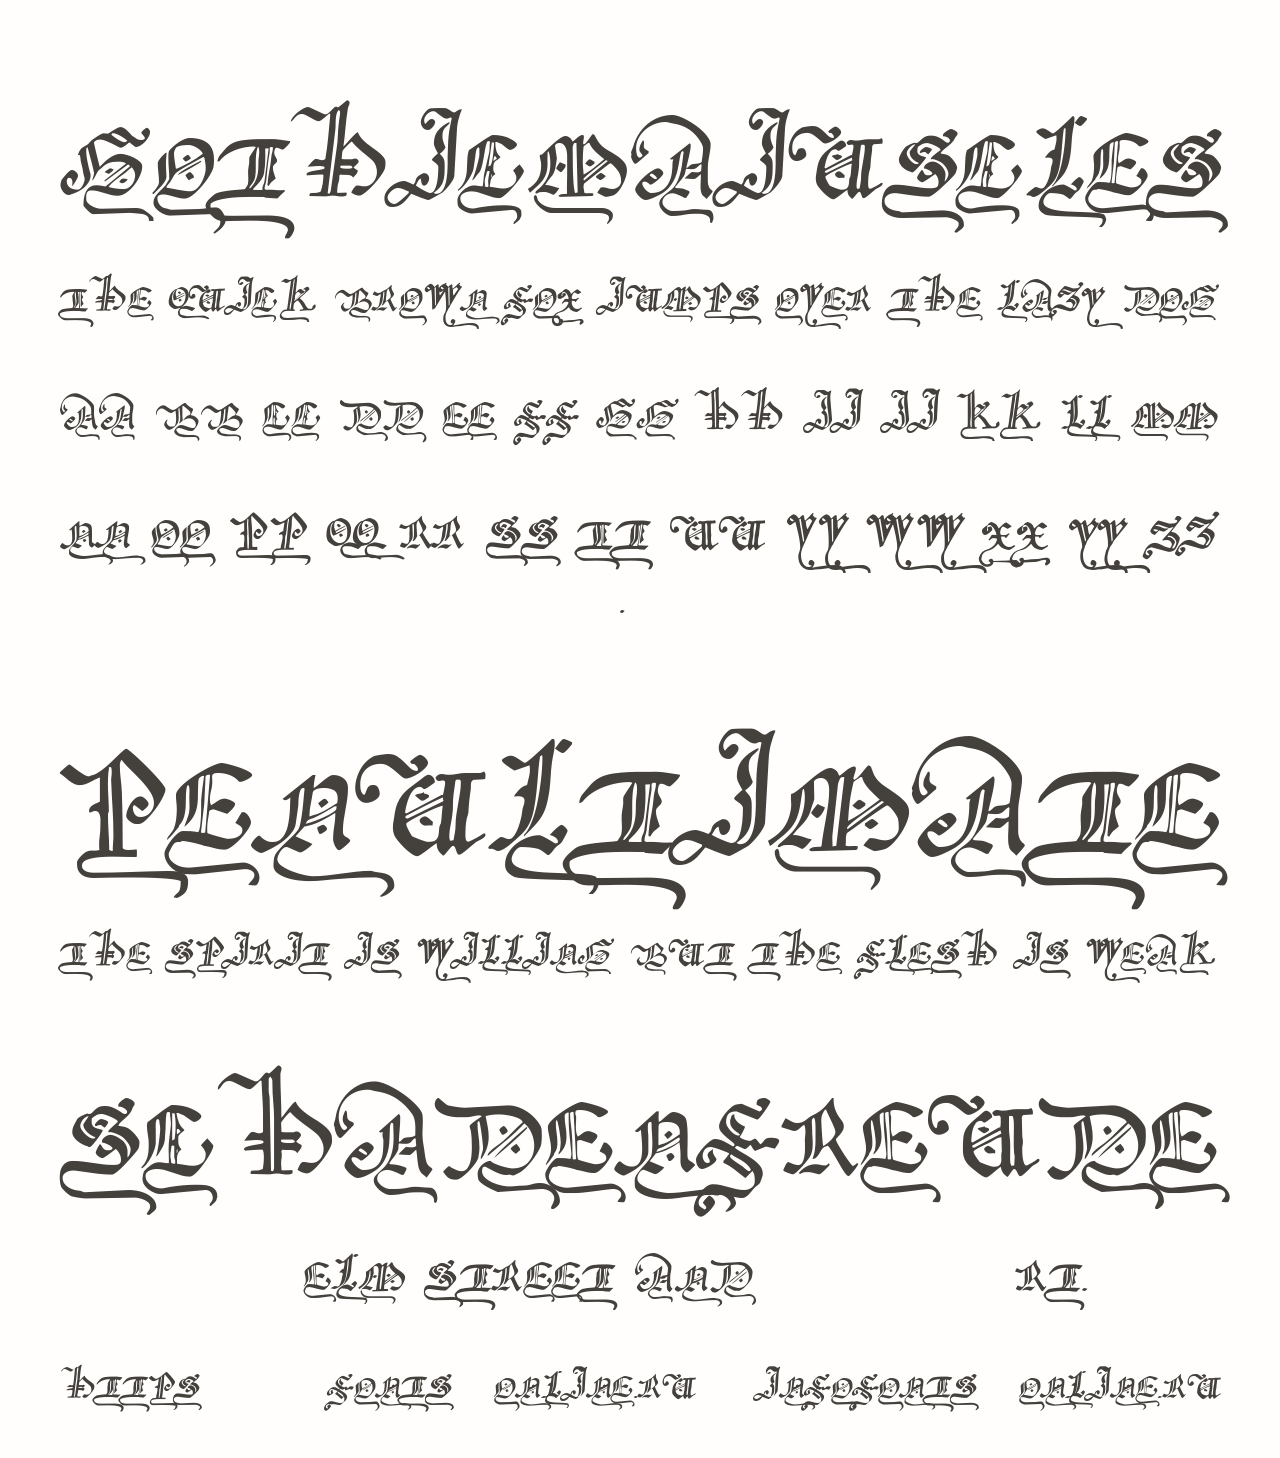 GOTHICMAJUSCLES
THE QUICK BROWN FOX JUMPS OVER THE LAZY DOG
AA BB CC DD EE FF GG HH II JJ KK LL MM
NN OO PP QQ RR SS TT UU VV WW XX YY ZZ
.
PENULTIMATE
THE SPIRIT IS WILLING BUT THE FLESH IS WEAK
SCHADENFREUDE
ELM STREET AND RT.
HTTPS FONTS ONLINERU INFOFONTS ONLINERU